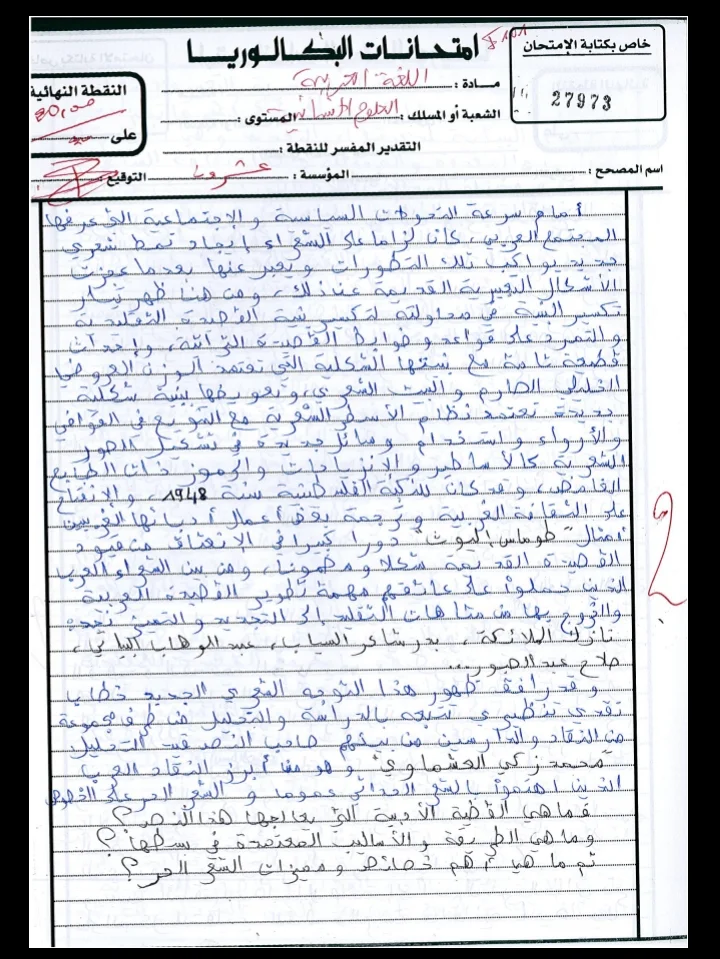 خاص بكتابة الإمتحان
27973
امتحانات البكالوريا
مادة : اللغة العربية
الشعبة أو المسلك : العلوم الإنسانية المستوى :
التقدير المفسر للنقطة :
النقطة النهائية
20,00
على
اسم المصحح : المؤسسة : عشرون التوقيع
أمام سرعة التحولات السياسية و الإجتماعية التي عرفها
المجتمع العربي، كان لزاما على الشعراء إيجاد نمط شعري
جديد يواكب تلك التطورات و يعبر عنها بعدما عجزت
الأشكال التعبيرية القديمة عند ذلك، ومن هنا ظهر تيار
تكسير البنية في محاولته لتكسير بنية القصيدة التقليدية
و التمرد على قواعد و ضوابط القصيدة التراثية، وإحداث
قطيعة تامة مع بنيتها الشكلية التي تعتمد الوزن العروضي
الخليلي الصارم و البيت الشعري، وتعويضها ببنية شكلية
جديدة تعتمد نظام الأسطر الشعرية مع التنويع في القوافي
والأرواء واستخدام وسائل جديدة في تشكيل الصور
الشعرية كالأساطير و الانزياحات والرموز ذات الطابع
الغامض، وقد كان للنكبة الفلسطينية سنة 1948، والانفتاح
على الثقافة الغربية و ترجمة بعض أعمال أدبائها الغربيين
أمثال "طوماس إليوت" دورا كبيرا في الانعتاق من قيود
القصيدة القديمة شكلا ومضمونا، ومن بين الشعراء العرب
الذين حملوا على عاتقهم مهمة تطوير القصيدة العربية
والخروج بها من متاهات التقليد إلى التجديد و التميز نجد:
نازك الملائكة، بدر شاكر السياب، عبد الوهاب البياتي،
صلاح عبد الصبور...
و قد رافق ظهور هذا التوجه الشعري الجديد خطاب
نقدي تنظيري تتبعه بالدراسة والتحليل من طرف مجموعة
من النقاد والدارسين من بينهم صاحب النص قيد التحليل
"محمد زكي العشماوي" وهو من أبرز النقاد العرب
الذين اهتموا بالشعر الحداثي عموما و الشعر الحر على الخصوص
فما هي القضية الأدبية التي يعالجها هذا النص؟
وما هي الطريقة و الأساليب المعتمدة في بسطها؟
ثم ما هي أهم خصائص و مميزات الشعر الحر؟
2